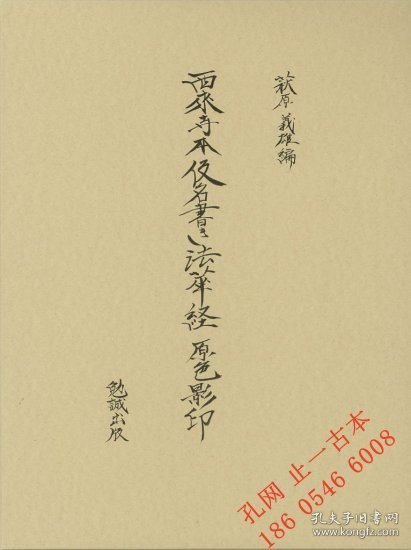 萩原義雄編
西来寺本仮名書き法華経 原色影印
勉誠出版
孔网 止一古本
186 0546 6008
孔夫子旧书网
www.kongfz.com